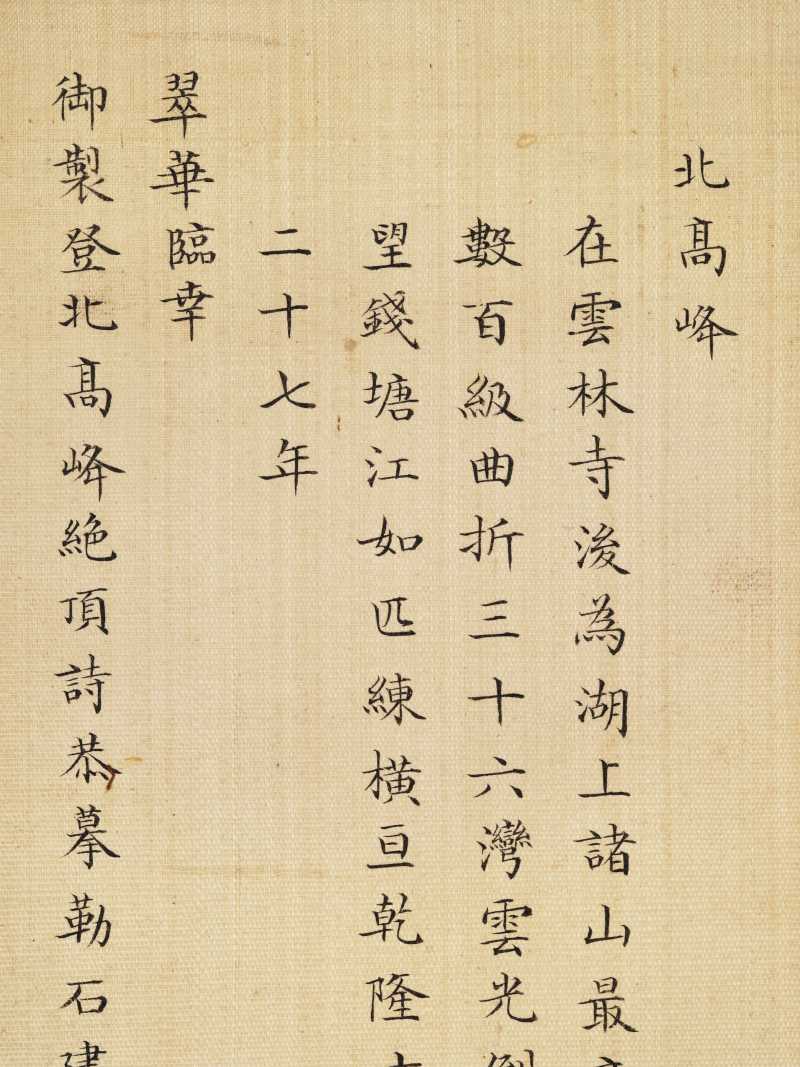 北高峰
在雲林寺後為湖上諸山最
數百級曲折三十六灣雲光倒
望錢塘江如匹練橫亘乾隆
二十七年
翠華臨幸
御製登北高峰絕頂詩恭摹勒石建